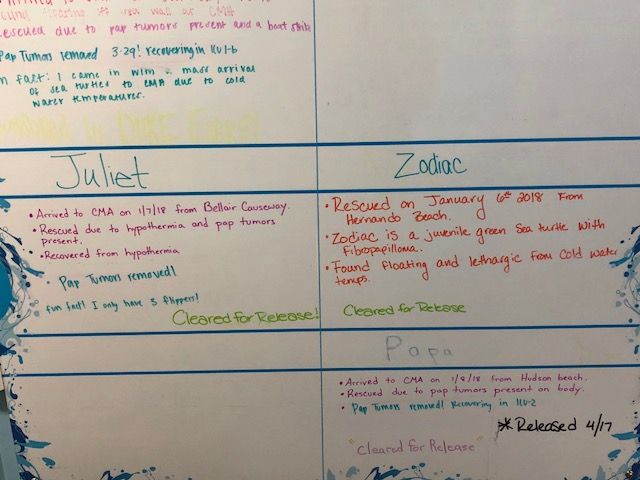 Rescued due to pap tumors present and a boat strike
Pap Tumors removed 3-29! recovering in ICU1-b
n fact: I came in with a mass arrival
of sea turtles to CMA due to cold
water temperatures.
Juliet
• Arrived to CMA on 1/7/18 from Bellair Causeway.
• Rescued due to hypothermia and pap tumors
present.
• Recovered from hypothermia
Pap Tumors removed!
fun fact! I only have 3 flippers!
Cleared for Release!
Zodiac
• Rescued on January 6th 2018 From
Hernando Beach.
• Zodiac is a juvenile green Sea turtle with
Fibropapilloma.
• Found floating and lethargic from Cold water
temps.
Cleared for Release
Papa
• Arrived to CMA on 1/8/18 from Hudson beach.
• Rescued due to pap tumors present on body.
• Pap Tumors removed! Recovering in ICU-2
* Released 4/17
"Cleared for Release"